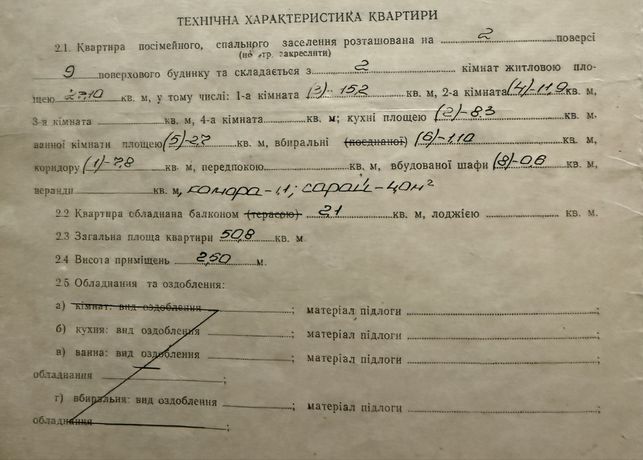 ТЕХНІЧНА ХАРАКТЕРИСТИКА КВАРТИРИ
2.1. Квартира посімейного, спального заселення розташована на 2 поверсі
(не потр. закреслити)
9 поверхового будинку та складається з 2 кімнат житловою пло-
щею 27,10 кв. м, у тому числі: 1-а кімната (3)-15,2 кв. м, 2-а кімната (4)-11,9 кв. м,
3-я кімната кв. м, 4-а кімната кв. м; кухні площею (2)-8,3 кв. м,
ванної кімнати площею (5)-2,7 кв. м, вбиральні (поєднаної) (6)-1,10 кв. м,
коридору (1)-7,8 кв. м, передпокою кв. м, вбудованої шафи (8)-0,6 кв. м,
веранди кв. м, комора-1,1; сарай-4,0м²
2.2 Квартира обладнана балконом (терасою) 2,1 кв. м, лоджією кв. м.
2.3 Загальна площа квартири 50,8 кв. м
2.4 Висота приміщень 2,50 м.
2.5 Обладнання та оздоблення:
а) кімнат: вид оздоблення ; матеріал підлоги ;
б) кухня: вид оздоблення ; матеріал підлоги ;
в) ванна: вид оздоблення ; матеріал підлоги ;
обладнання ;
г) вбиральня: вид оздоблення ; матеріал підлоги ;
обладнання ;